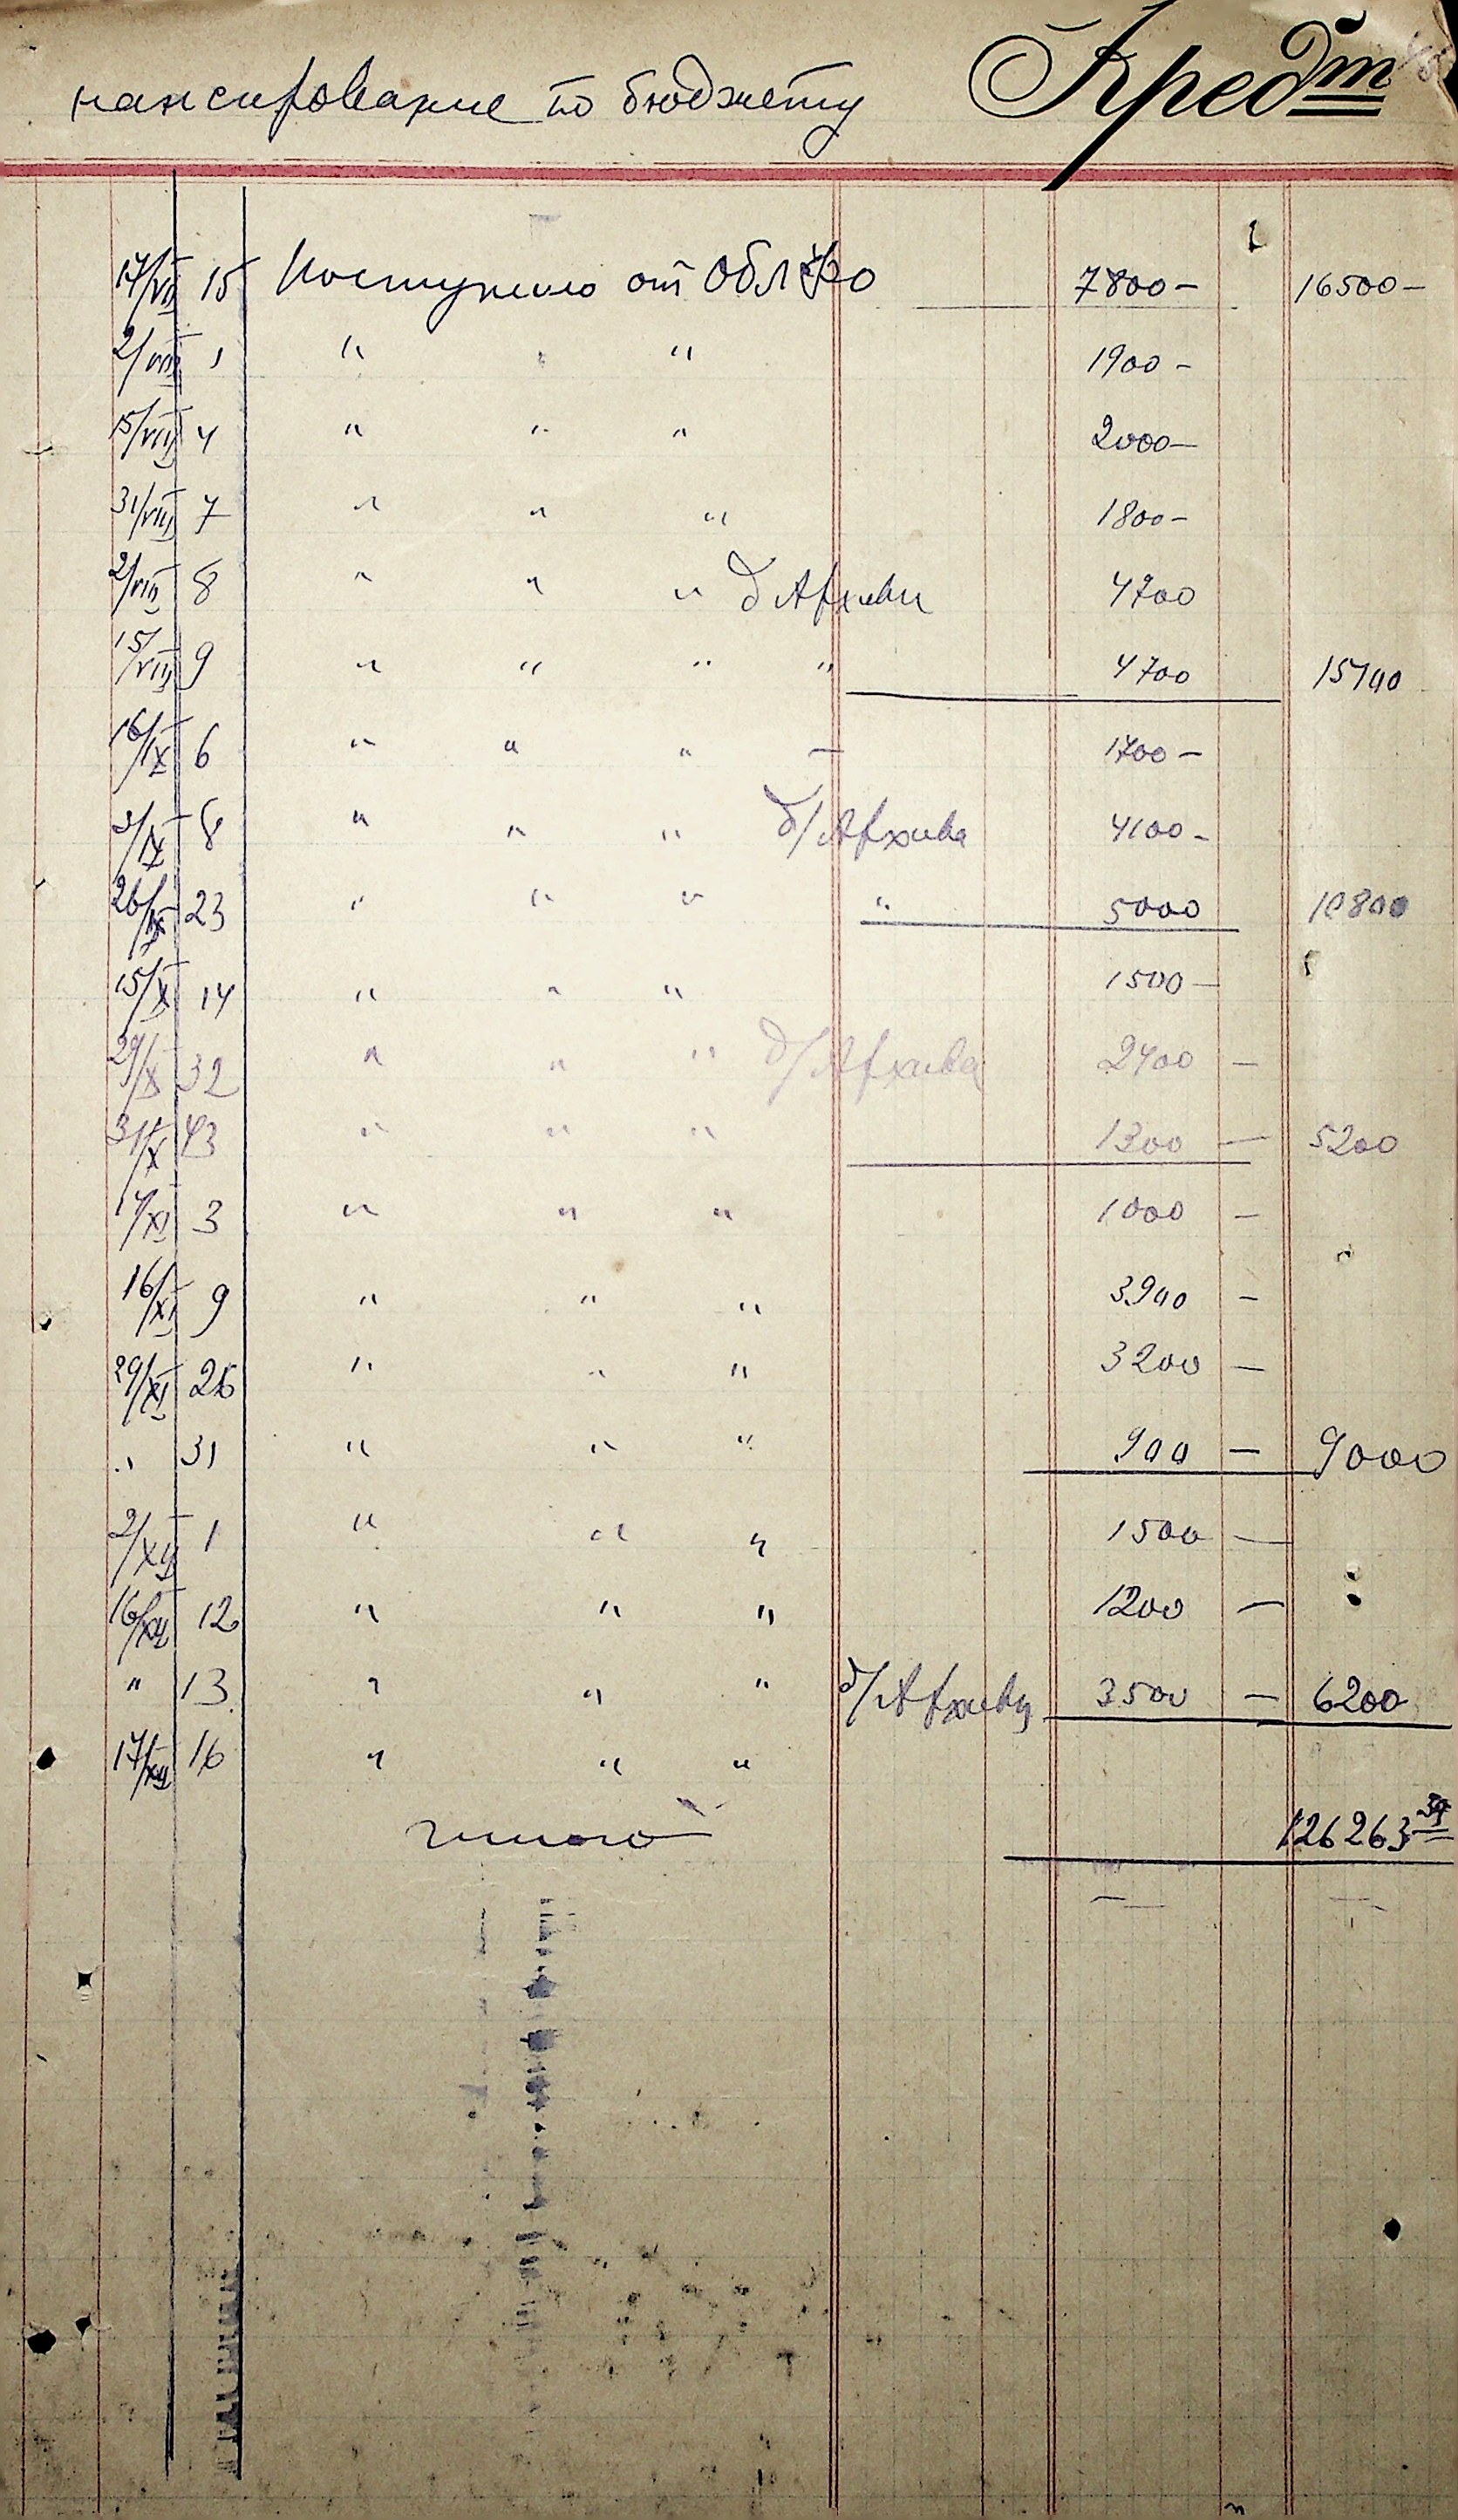 нансирование по бюджету Кредит
17/VII 15 Поступило от ОблФО 7800- 16500-
2/VIII 1 " " " 1900-
15/VIII 4 " " " 2000-
31/VIII 7 " " " 1800-
2/VIII 8 " " " д Архива 4700
15/VIII 9 " " " " 4700 15100
16/IX 6 " " " — 1700-
3/IX 8 " " " д/Архива 4100-
26/IX 23 " " " " 5000 10800
15/X 14 " " " 1500-
29/X 32 " " " д/Архива 2400 -
31/X 43 " " " 1300 - 5200
14/XI 3 " " " 1000 -
16/XI 9 " " " 3900 -
29/XI 26 " " " 3200 -
" 31 " " " 900 - 9000
2/XII 1 " " " 1500 -
16/XII 12 " " " 1200 -
" 13 " " " д/Архива 3500 - 6200
17/XII 16 " " "
126263